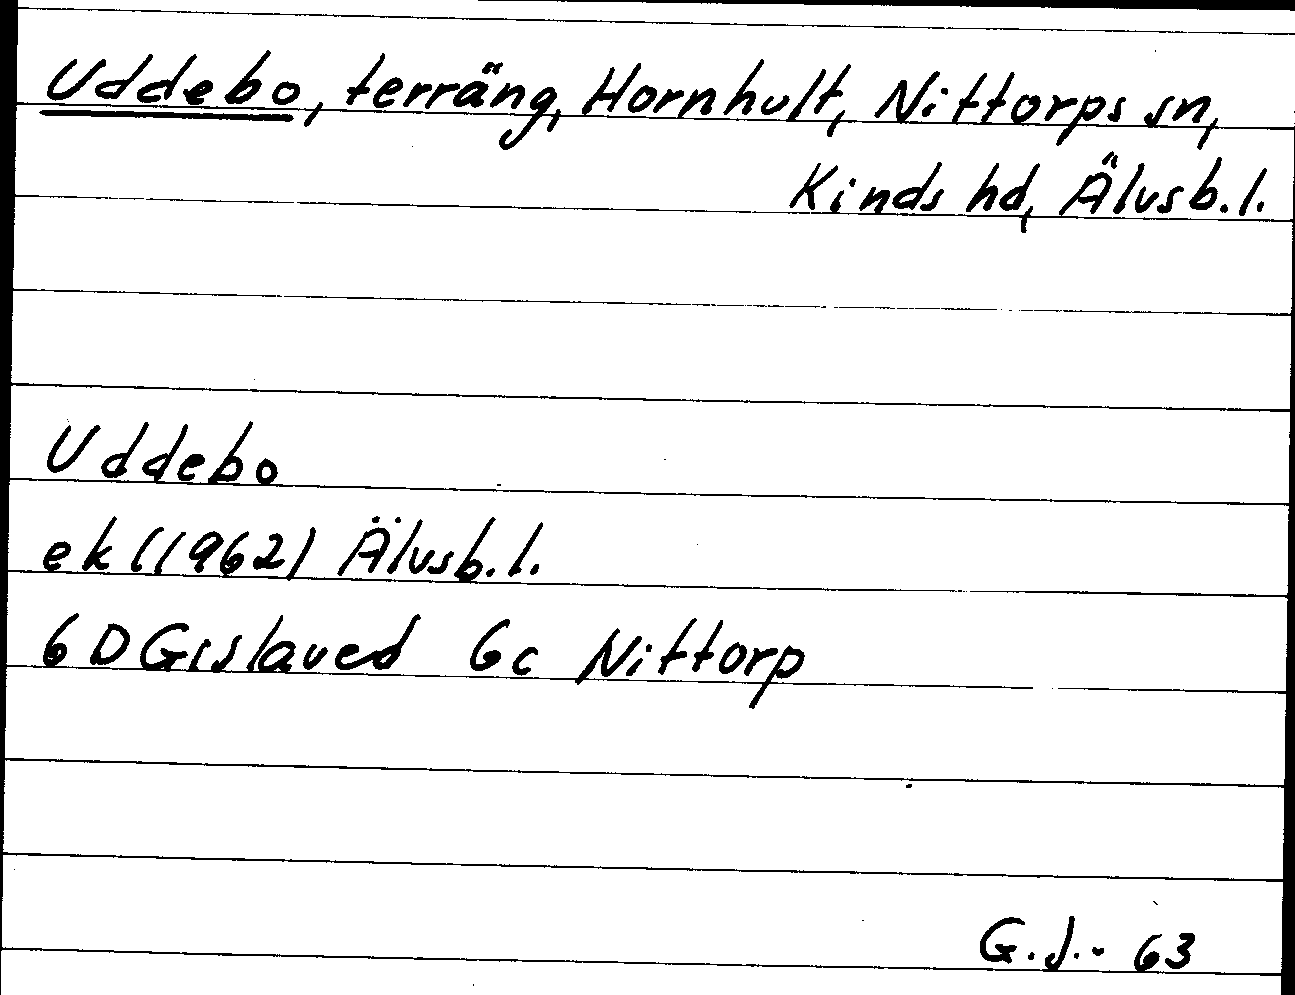 Uddebo, terräng, Hornhult, Nittorps sn,
Kinds hd, Älvsb.l.
Uddebo
ek (1962) Älvsb.l.
6D Gislaved 6c Nittorp
G.J.- 63